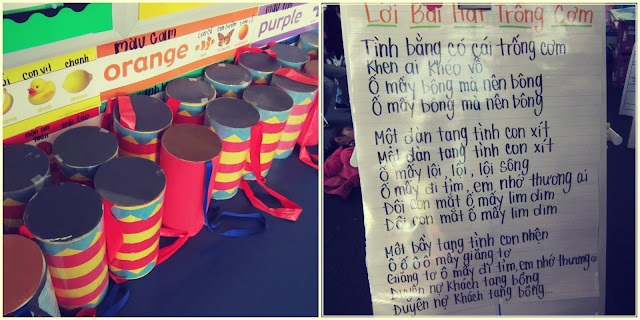 con vịt
chanh
màu cam
orange
purple
Lời Bài Hát Trống Cơm
Tình bằng có cái trống cơm
Khen ai khéo vỗ
Ô mấy bông mà nên bông
Ô mấy bong mà nên bông
Một đan tang tình con xít
Một đan tang tình con xít
Ô mấy lội, lội, lội sông
Ô mấy đi tìm, em nhớ thương ai
Đôi con mắt ô mấy lim dim
Đôi con mắt ô mấy lim dim
Một bầy tang tình con nhện
Ô ố ô ô mấy giăng tơ
Giăng tơ ô mấy đi tìm, em nhớ thương ai
Duyên nợ khách tang bồng
Duyên nợ khách tang bồng...